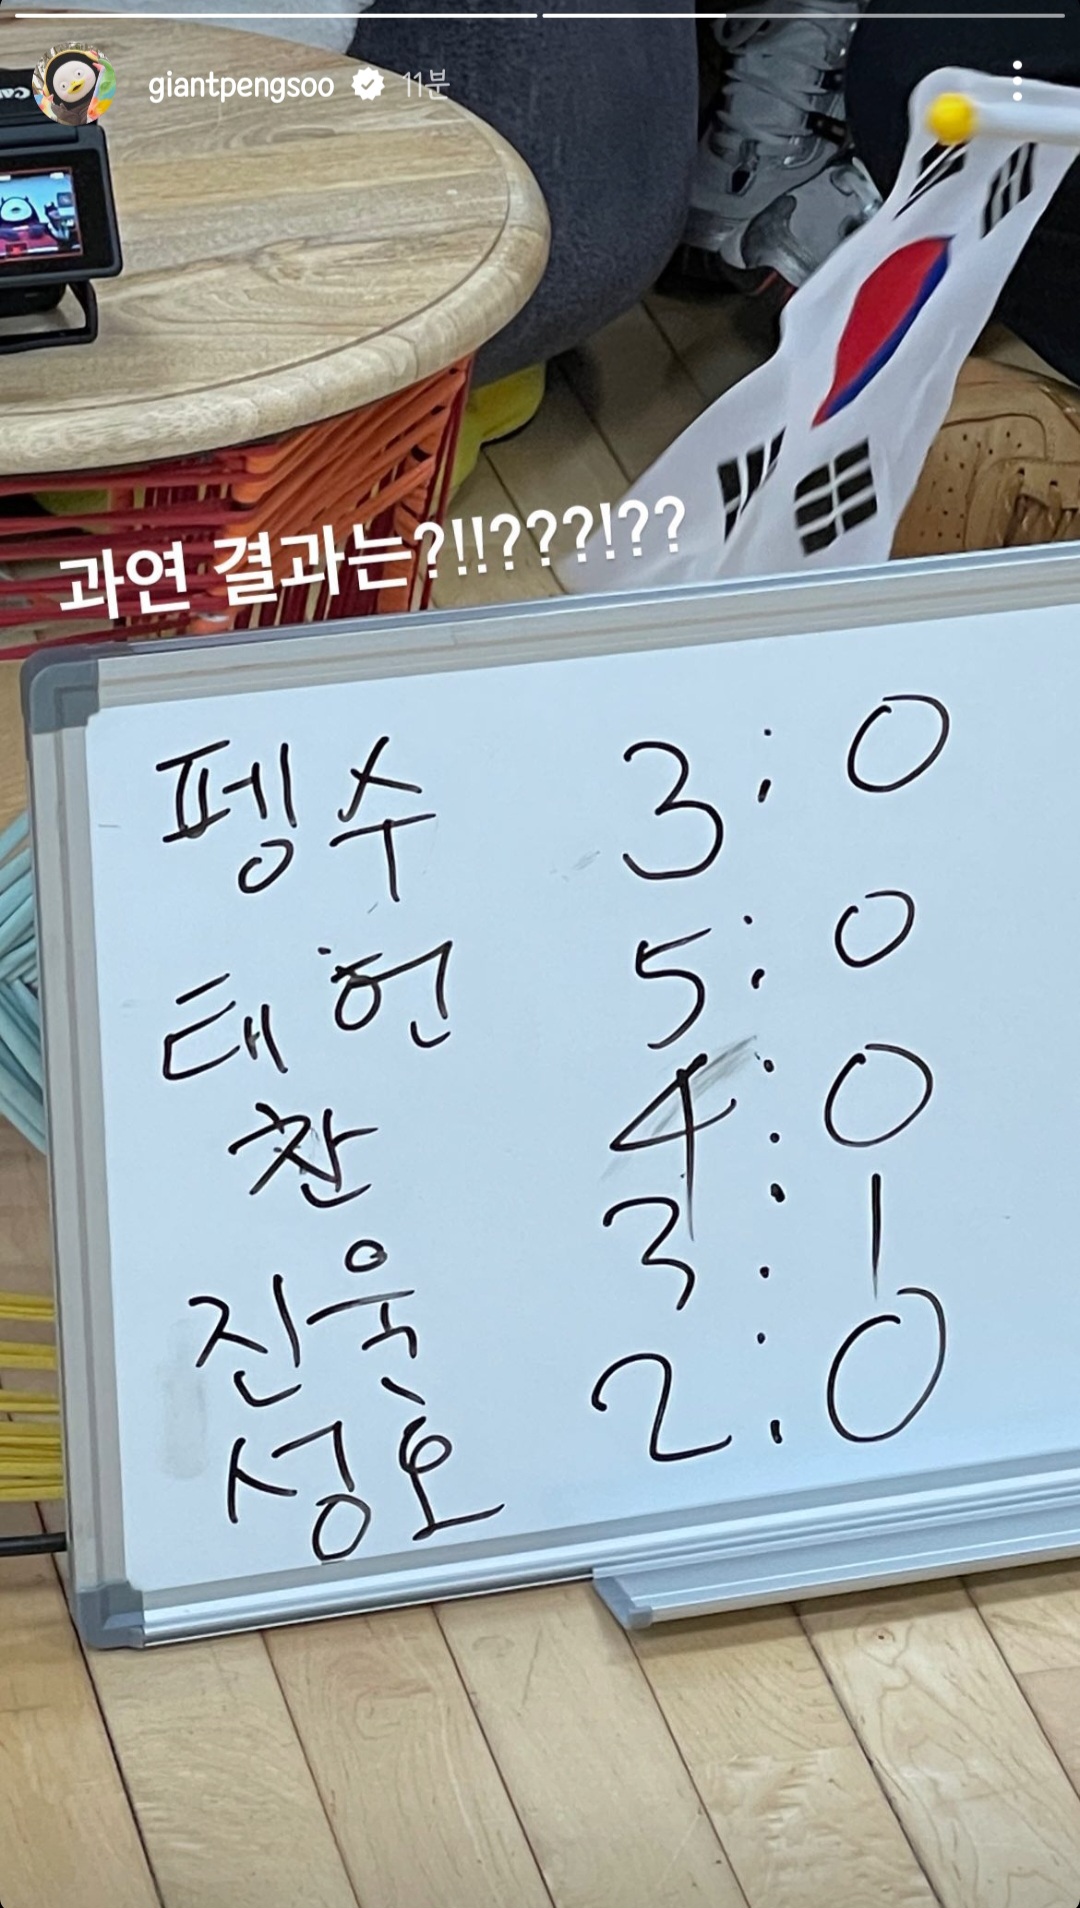 giantpengsoo 11분
과연 결과는?!!???!??
펭수 3:0
태헌 5:0
찬 4:0
진욱 3:1
성호 2:0